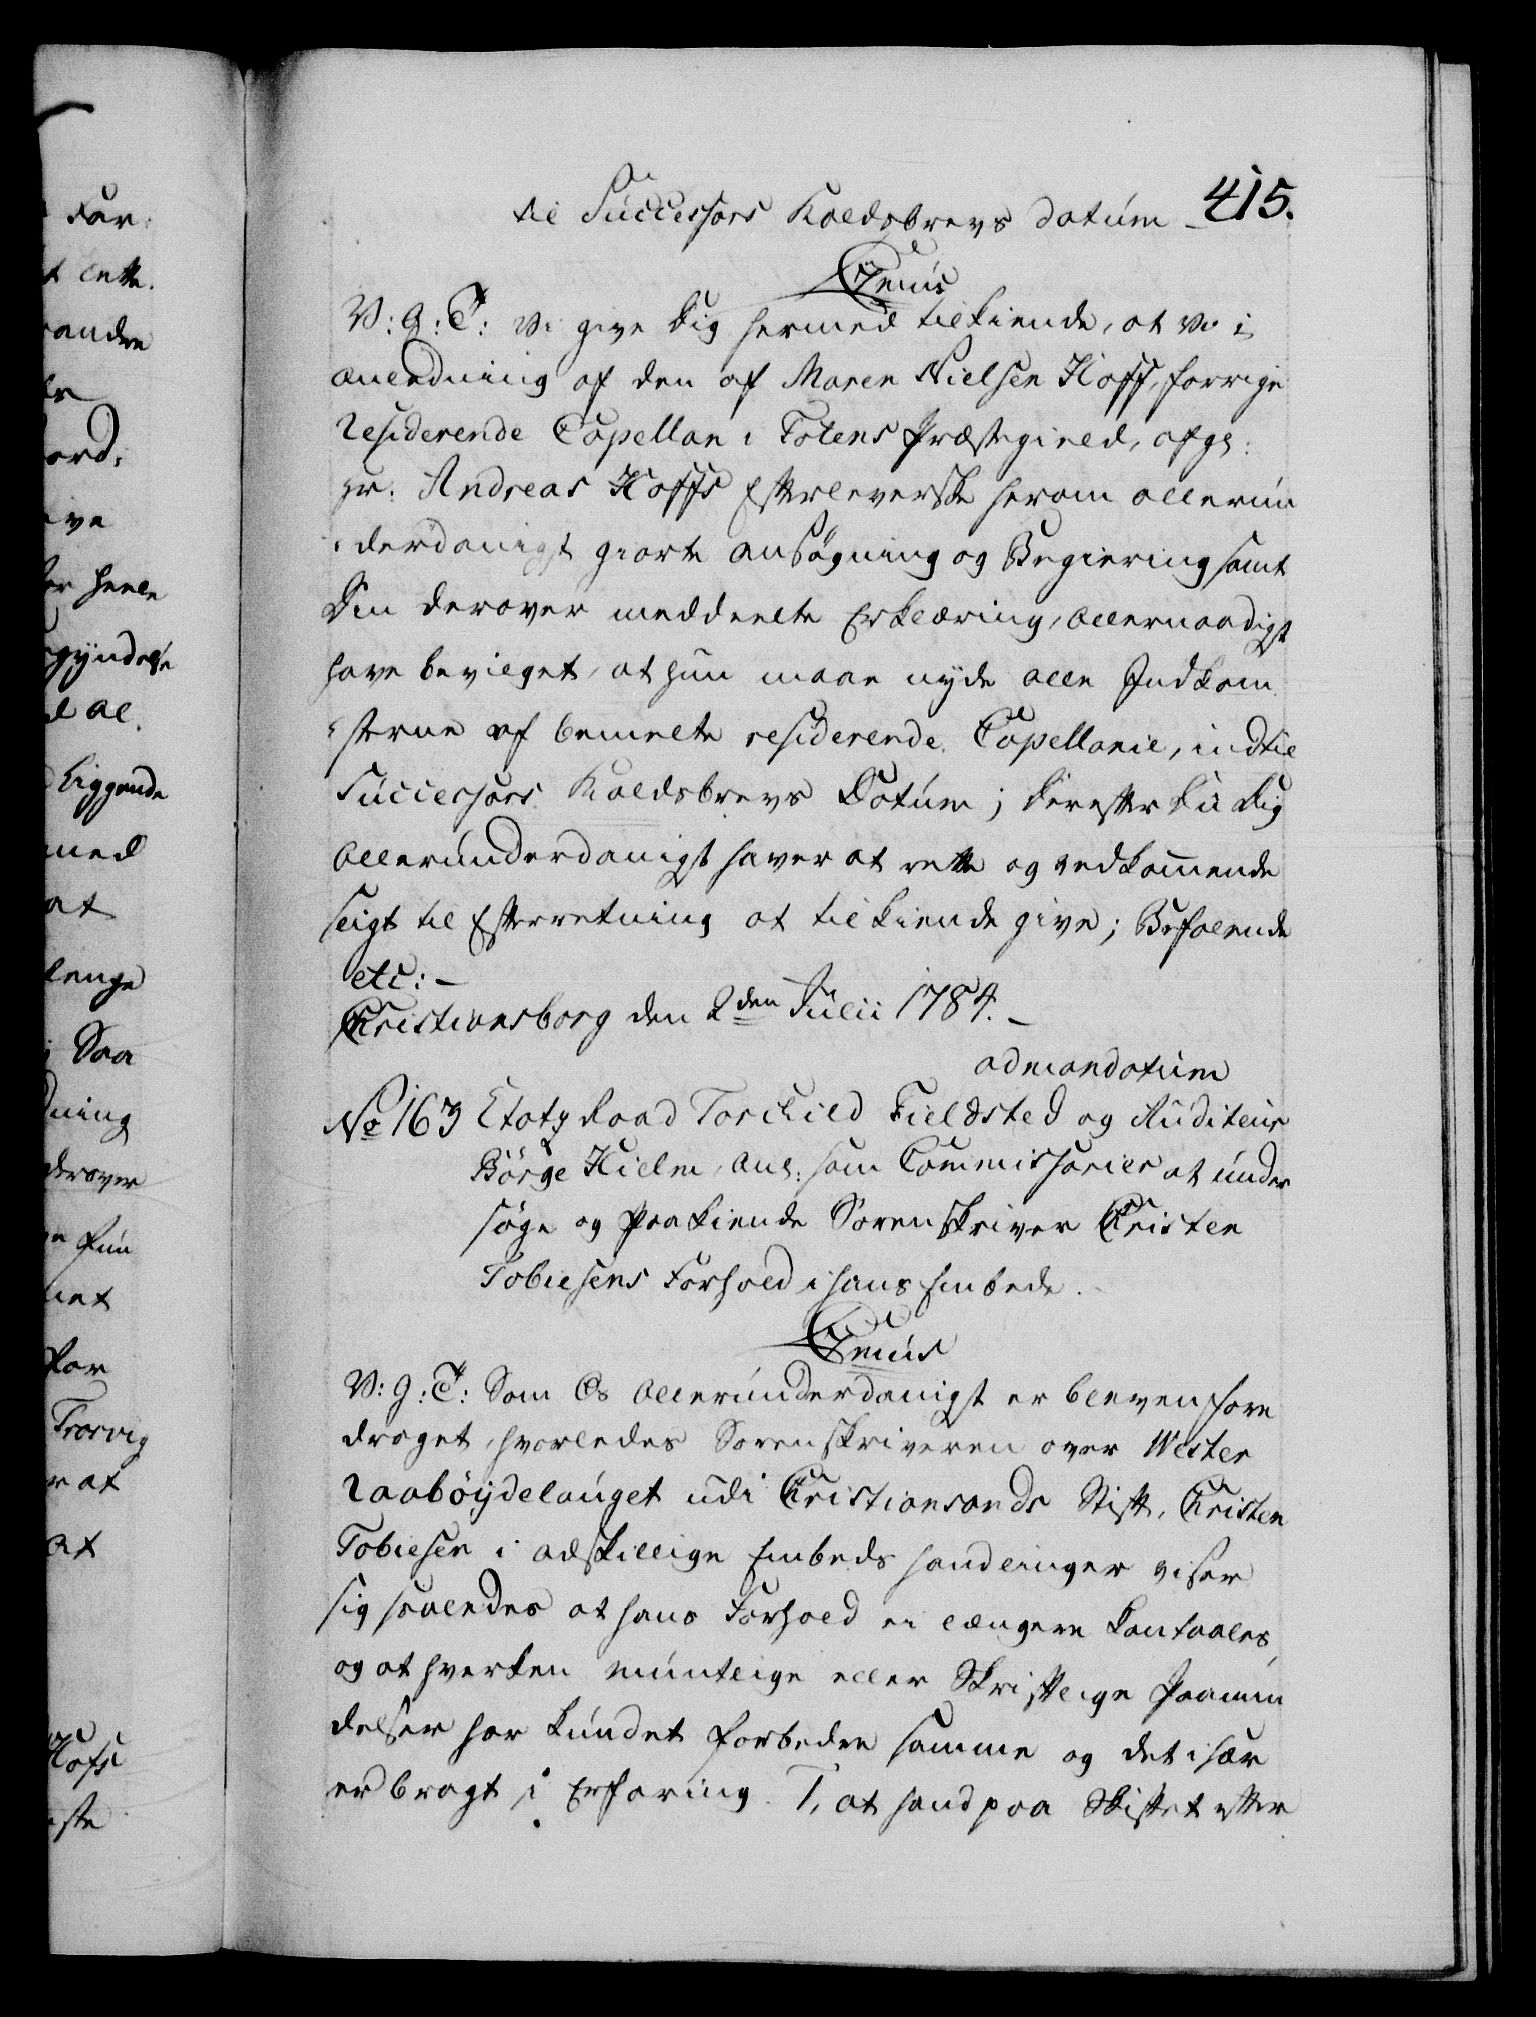 415.
til Successors Kaldsbrevs datum
Chr: 7mus
V: G: T: Vi give dig hermed tilkiende, at Vi i
anledning af den af Maren Nielsen Hoff, forrige
residerende Capellan i Totens Præstegield, afg:
Hr. Andreas Hoffs Efterleverske herom allerun
derdanigst giorte ansøgning og Begiering samt
Din derover meddeelte Erklæring, allernaadigst
have bevilget, at hun maae nyde alle Indkom
sterne af bemelte residerende Capellanie, indtil
Successors Kaldsbrevs Datum; derefter du dig
allerunderdanigst haver at rette og vedkommende
sligt til Efterretning at tilkiende give; Befalende
etc: -
Christiansborg den 2den Julii 1784. -
ad mandatum
No 163 Etatz Raad Torchild Fieldsted og Auditeur
Börge Hielm, anl: som Commissarier at under
søge og paakiende Sorenskriver Christen
Tobiesens Forhold i hans Embede.
Chr: 7mus
V: G: T: Som Os allerunderdanigst er bleven fore
draget, hvorledes Sorenskriveren over Wester
Raabøÿdelauget udi Christiansands Stift, Christen
Tobiesen i adskillige Embeds handlinger viser
sig saaledes at hans Forhold ei længere kan taales,
og at hverken mundtlige eller Skriftlige Paamin
delser har kundet forbedre samme og det i sær
er bragt i Erfaring 1, at hand paa Skiftet efter